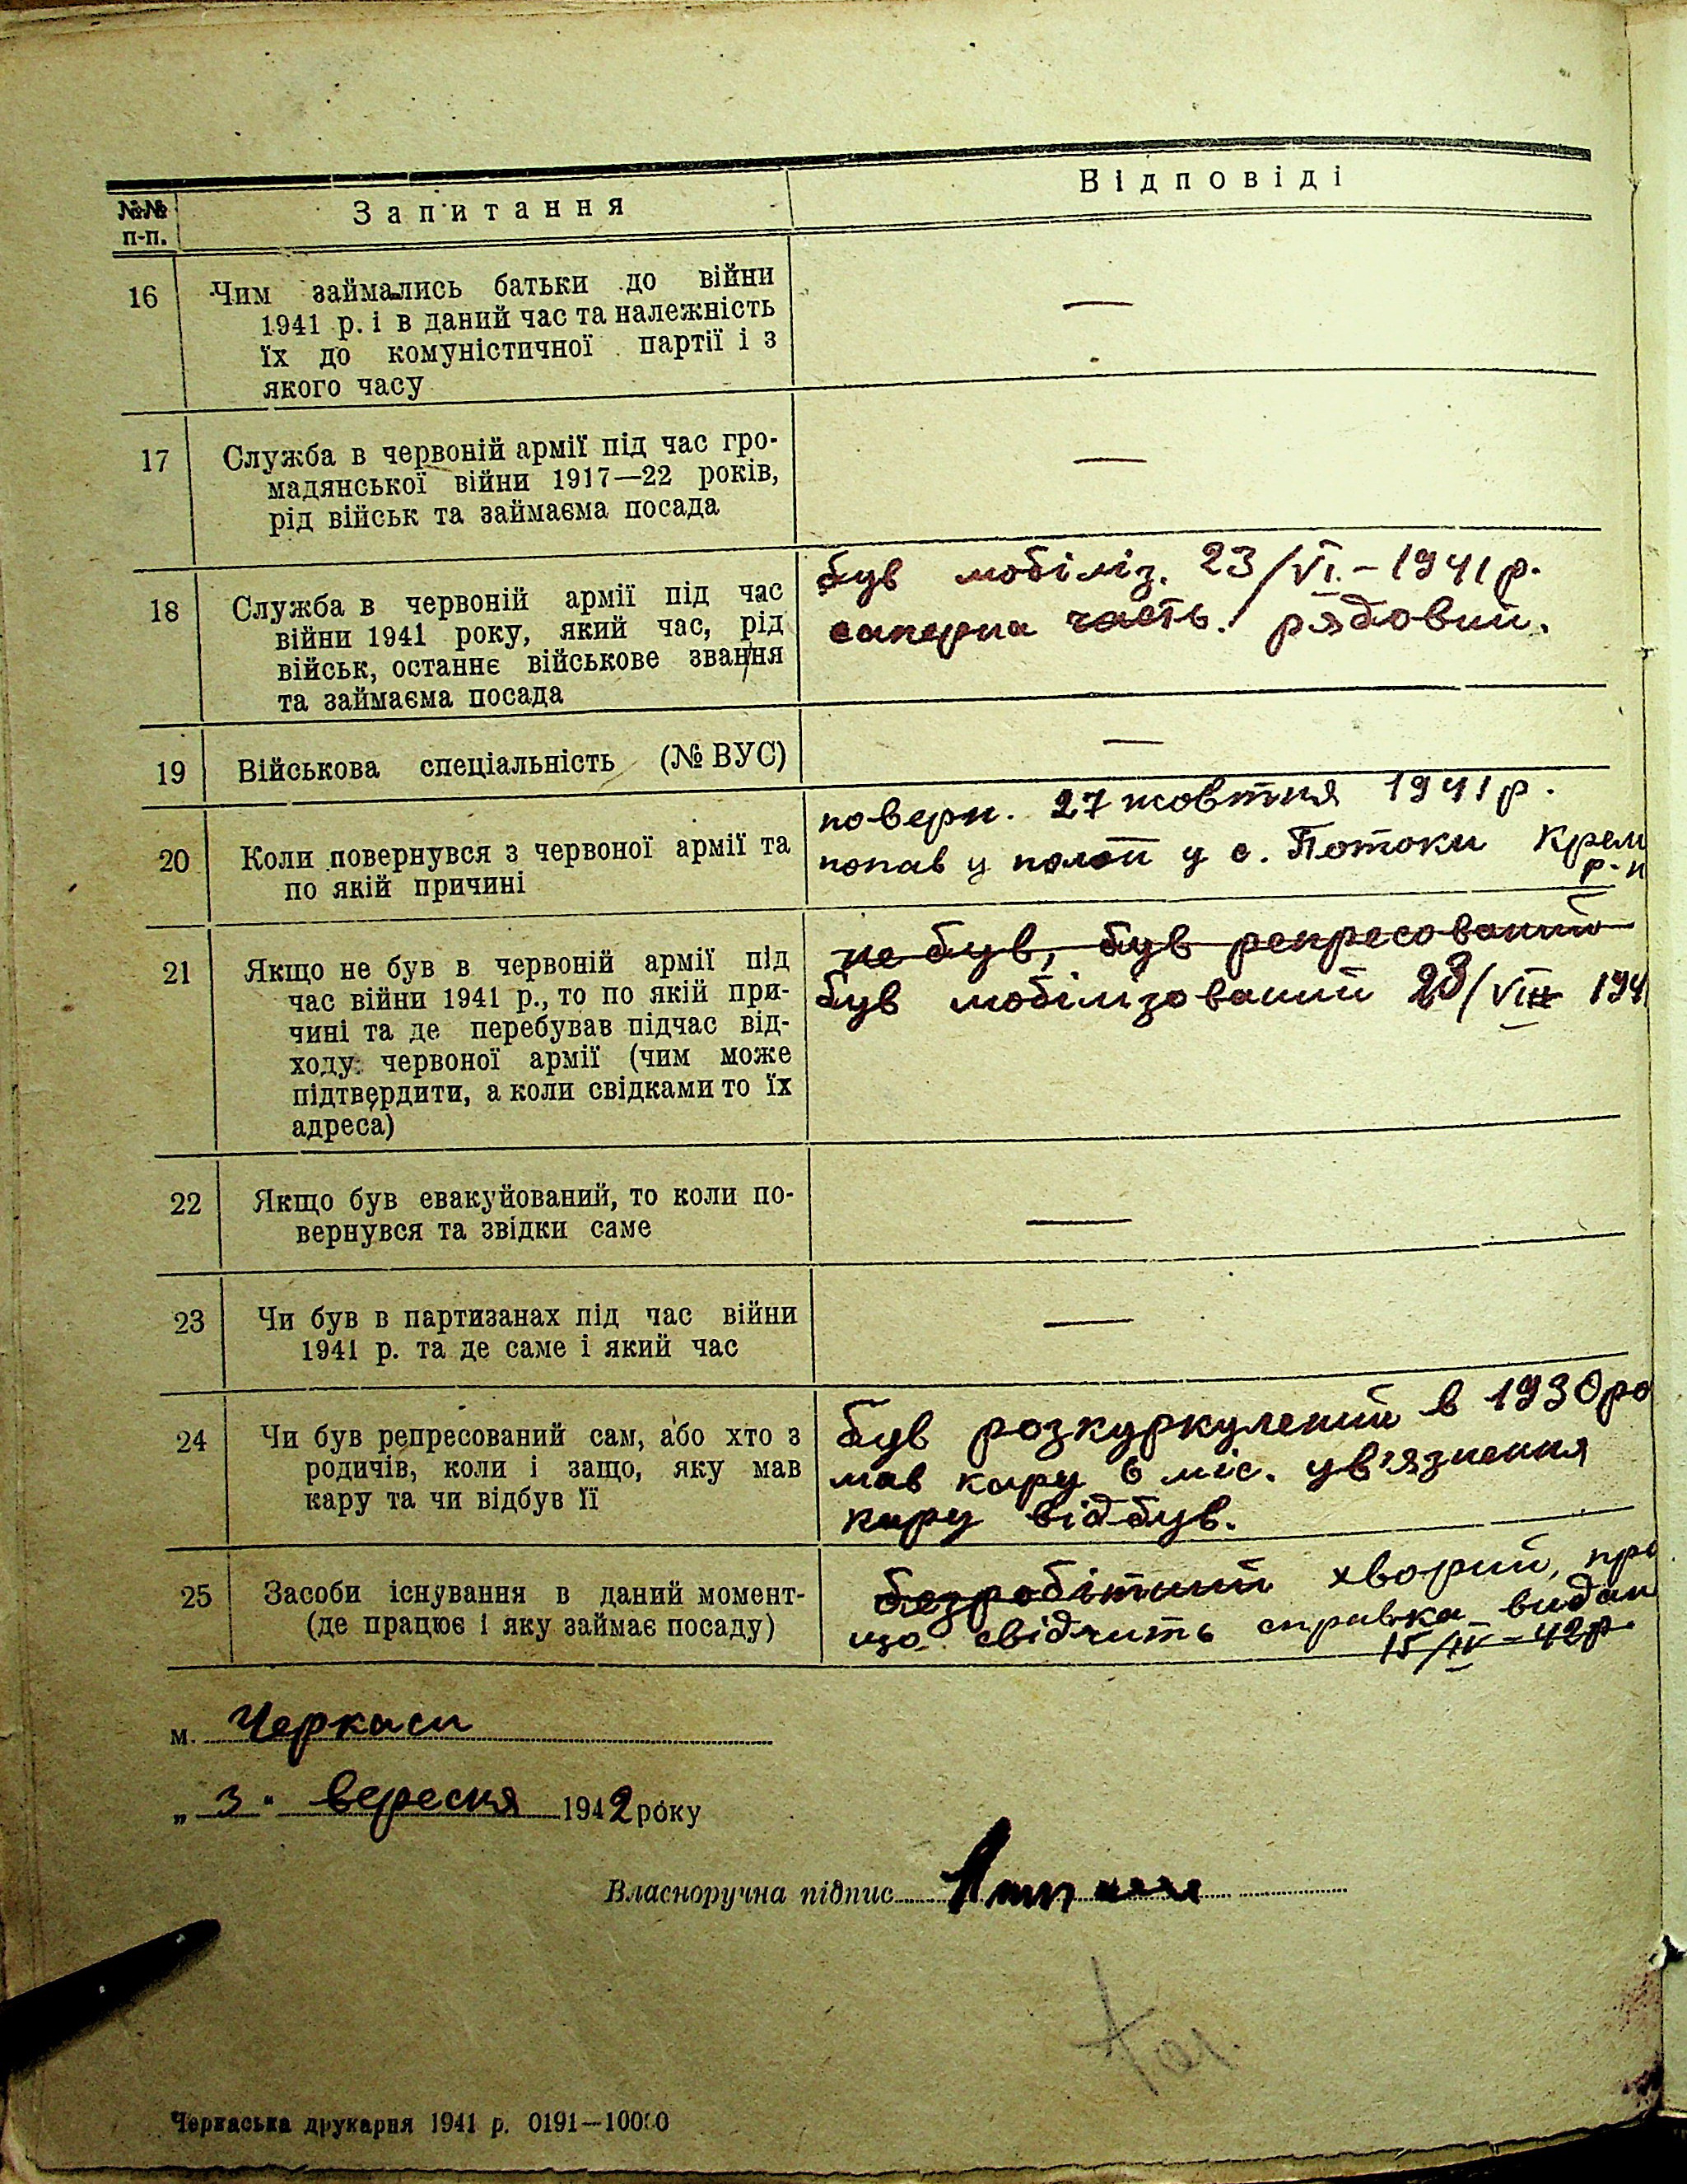 №№ п-п.
Запитання
Відповіді
16
Чим займались батьки до війни
1941 р. і в даний час та належність
їх до комуністичної партії і з
якого часу
—
17
Служба в червоній армії під час гро-
мадянської війни 1917—22 років,
рід військ та займаєма посада
—
18
Служба в червоній армії під час
війни 1941 року, який час, рід
військ, останнє військове звання
та займаєма посада
був мобіліз. 23/VI.-1941 р.
саперна часть. рядовий.
19
Військова спеціальність (№ ВУС)
—
20
Коли повернувся з червоної армії та
по якій причині
поверн. 27 жовтня 1941 р.
попав у полон у с. Потоки Крем
р-н
21
Якщо не був в червоній армії під
час війни 1941 р., то по якій при-
чині та де перебував підчас від-
ходу червоної армії (чим може
підтвердити, а коли свідками то їх
адреса)
не був, був репресований
був мобілізований 23/VI 194
22
Якщо був евакуйований, то коли по-
вернувся та звідки саме
—
23
Чи був в партизанах під час війни
1941 р. та де саме і який час
—
24
Чи був репресований сам, або хто з
родичів, коли і защо, яку мав
кару та чи відбув її
був розкуркулений в 1930 ро
мав кару 6 міс. ув'язнення
кару відбув.
25
Засоби існування в даний момент-
(де працює і яку займає посаду)
безробітний хворий, про
що свідчить справка видан
15/IV-42р.
м. Черкаси
„3“ вересня 1942 року
Власноручна підпис
Черкаська друкарня 1941 р. 0191—10000